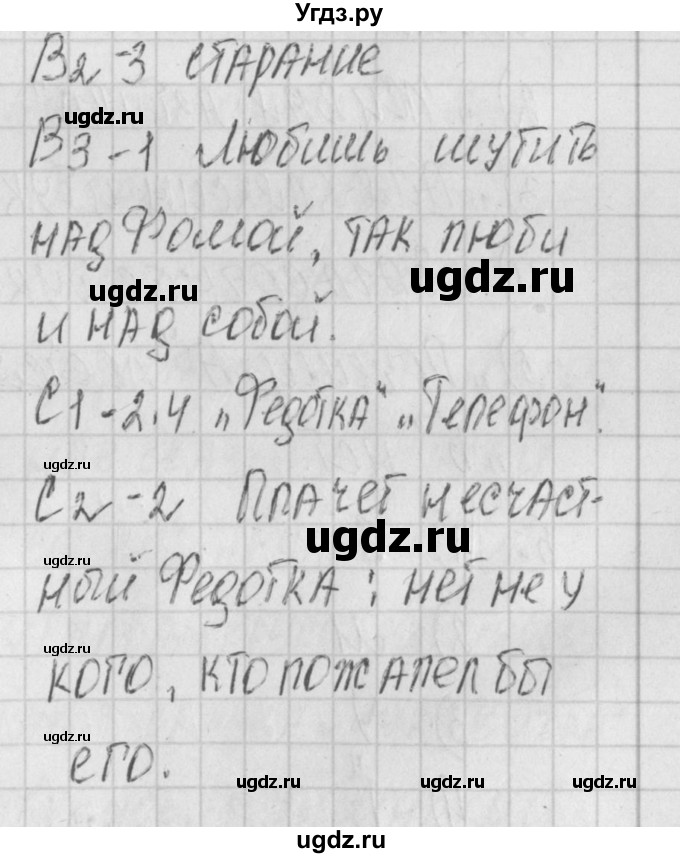 Угдз.ру
В2-3 старание
ugdz.ru
В3-1 Любишь шутить
над Фомой, так люби
ugdz.ru
ugdz.ru
и над собой.
С1-2.4 „Федотка“ „Телефон“.
ugdz.ru
С2-2 Плачет несчаст-
ugdz.ru
ugdz.ru
ный Федотка: нет не у
ugdz.ru
кого, кто пожалел бы
ugdz.ru
его.
ugdz.ru ugdz.ru ugdz.ru
ugdz.ru